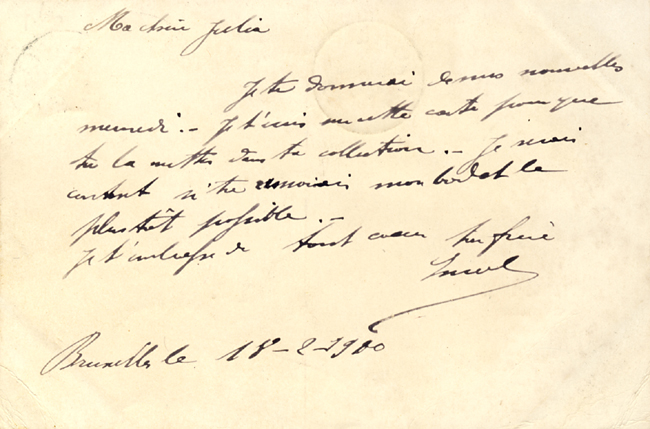 Ma chère Julia
Je te donnerai de mes nouvelles
mercredi. – Je t'envoie cette carte pour que
tu la mettes dans ta collection. – Je serais
content si tu m'envoiais mon le
plus tôt possible. –
Je t'embrasse de tout coeur ton frère
Bruxelles le 18–2–1900